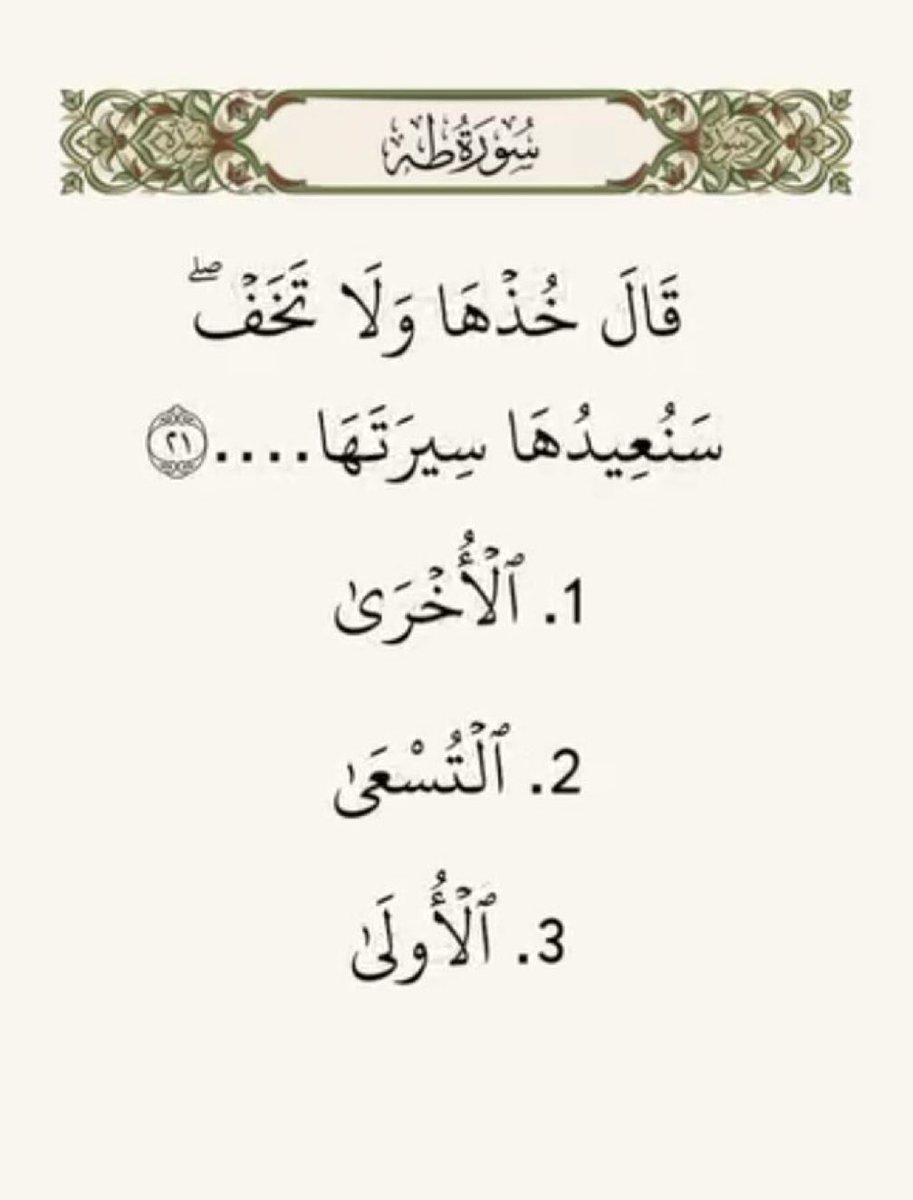 سُورَةُ طه
قَالَ خُذْهَا وَلَا تَخَفْ ۖ
سَنُعِيدُهَا سِيرَتَهَا....٢١
1. ٱلْأُخْرَىٰ
2. ٱلْتُسْعَىٰ
3. ٱلْأُولَىٰ